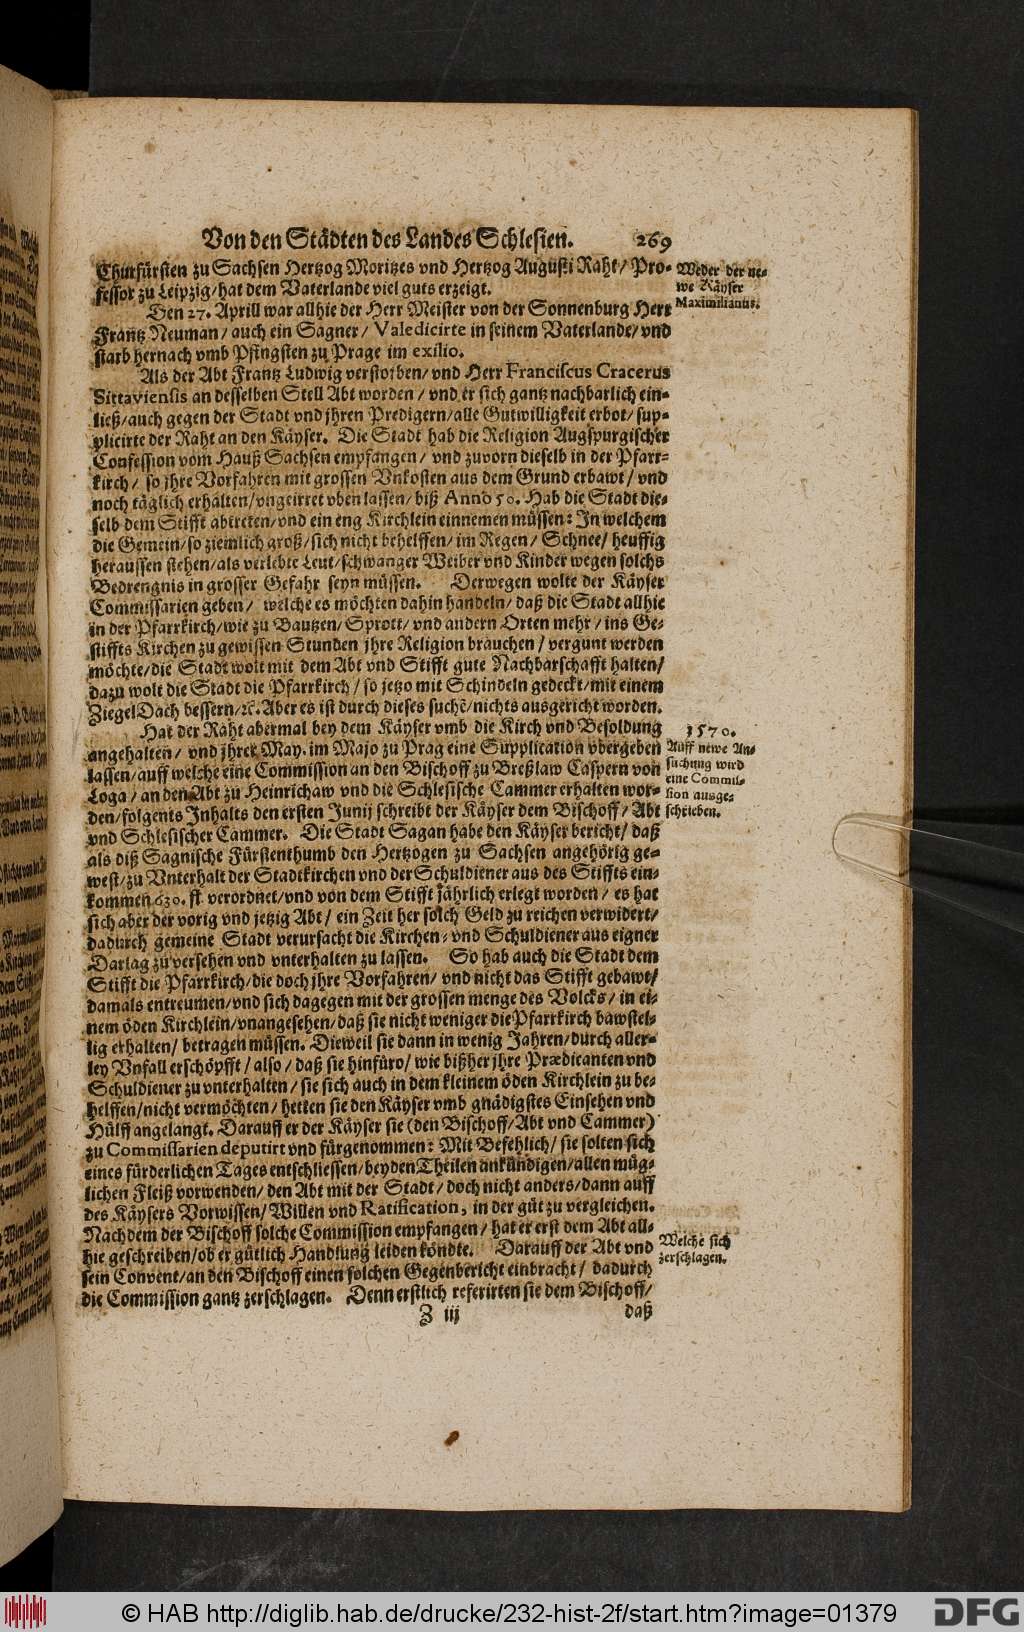 Von den Städten des Landes Schlesien. 269
Churfürsten zu Sachsen Hertzog Moritzes vnd Hertzog Augusti Raht/ Pro-
fessor zu Leipzig/ hat dem Vaterlande viel guts erzeigt.
Weder der ne-
we Käyser
Maximilianus.
Den 27. Aprill war allhie der Herr Meister von der Sonnenburg Herr
Frantz Neuman/ auch ein Sagner/ Valedicirte in seinem Vaterlande/ vnd
starb hernach vmb Pfingsten zu Prage im exilio.
Als der Abt Frantz Ludwig verstorben/ vnd Herr Franciscus Cracerus
Sittaviensis an desselben Stell Abt worden/ vnd er sich gantz nachbarlich ein-
ließ/ auch gegen der Stadt vnd jhren Predigern/ alle Gutwilligkeit erbot/ sup-
plicirte der Raht an den Käyser. Die Stadt hab die Religion Augspurgischer
Confession vom Hauß Sachsen empfangen/ vnd zuvorn dieselb in der Pfarr-
kirch/ so jhre Vorfahren mit grossen Vnkosten aus dem Grund erbawt/ vnd
noch täglich erhalten/ vngeirret vben lassen/ biß Anno 50. Hab die Stadt die-
selb dem Stifft abtreten/ vnd ein eng Kirchlein einnemen müssen: In welchem
die Gemein/ so ziemlich groß/ sich nicht behelffen/ im Regen/ Schnee/ heuffig
heraussen stehen/ als verlebte Leut/ schwanger Weiber vnd Kinder wegen solchs
Bedrengnis in grosser Gefahr seyn müssen. Derwegen wolte der Käyser
Commissarien geben/ welche es möchten dahin handeln/ daß die Stadt allhie
in der Pfarrkirch/ wie zu Bautzen/ Sprott/ vnd andern Orten mehr/ ins Ge-
stiffts Kirchen zu gewissen Stunden jhre Religion brauchen/ vergunt werden
möchte/ die Stadt wolt mit dem Abt vnd Stifft gute Nachbarschafft halten/
dazu wolt die Stadt die Pfarrkirch/ so jetzo mit Schindeln gedeckt/ mit einem
Ziegel Dach bessern/ ꝛc. Aber es ist durch dieses suchē/ nichts ausgericht worden.
Hat der Raht abermal bey dem Käyser vmb die Kirch vnd Besoldung
angehalten/ vnd jhrer May. im Majo zu Prag eine Supplication vbergeben
lassen/ auff welche eine Commission an den Bischoff zu Breßlaw Caspern von
Loga/ an den Abt zu Heinrichaw vnd die Schlesische Cammer erhalten wor-
den/ folgents Inhalts den ersten Junij schreibt der Käyser dem Bischoff/ Abt
1570.
Auff newe An-
suchung wird
eine Commis-
sion ausge-
schrieben.
vnd Schlesischer Cammer. Die Stadt Sagan habe den Käyser bericht/ daß
als diß Sagnische Fürstenthumb den Hertzogen zu Sachsen angehörig ge-
west/ zu Vnterhalt der Stadtkirchen vnd der Schuldiener aus des Stiffts ein-
kommen 630. fl. verordnet/ vnd von dem Stifft jährlich erlegt worden/ es hat
sich aber der vorig vnd jetzig Abt/ ein Zeit her solch Geld zu reichen verwidert/
dadurch gemeine Stadt verursacht die Kirchen- vnd Schuldiener aus eigner
Darlag zu versehen vnd vnterhalten zu lassen. So hab auch die Stadt dem
Stifft die Pfarrkirch/ die doch jhre Vorfahren/ vnd nicht das Stifft gebawt/
damals entreumen/ vnd sich dagegen mit der grossen menge des Volcks/ in ei-
nem öden Kirchlein/ vnangesehen/ daß sie nicht weniger die Pfarrkirch bawstel-
lig erhalten/ betragen müssen. Dieweil sie dann in wenig Jahren/ durch aller-
ley Vnfall erschöpfft/ also/ daß sie hinfüro/ wie bißher jhre Prædicanten vnd
Schuldiener zu vnterhalten/ sie sich auch in dem kleinem öden Kirchlein zu be-
helffen/ nicht vermöchten/ hetten sie den Käyser vmb gnädigstes Einsehen vnd
Hülff angelangt. Darauff er der Käyser sie (den Bischoff/ Abt vnd Cammer)
zu Commissarien deputirt vnd fürgenommen: Mit Befehlich/ sie solten sich
eines fürderlichen Tages entschliessen/ beyden Theilen ankündigen/ allen müg-
lichen Fleiß vorwenden/ den Abt mit der Stadt/ doch nicht anders/ dann auff
des Käysers Vorwissen/ Willen vnd Ratification, in der güt zu vergleichen.
Nachdem der Bischoff solche Commission empfangen/ hat er erst dem Abt all-
hie geschreiben/ ob er gütlich Handlung leiden köndte. Darauff der Abt vnd
sein Convent/ an den Bischoff einen solchen Gegenbericht einbracht/ dadurch
die Commission gantz zerschlagen. Denn erstlich referirten sie dem Bischoff/
Welche sich
zerschlagen.
Z iij daß
© HAB http://diglib.hab.de/drucke/232-hist-2f/start.htm?image=01379
DFG